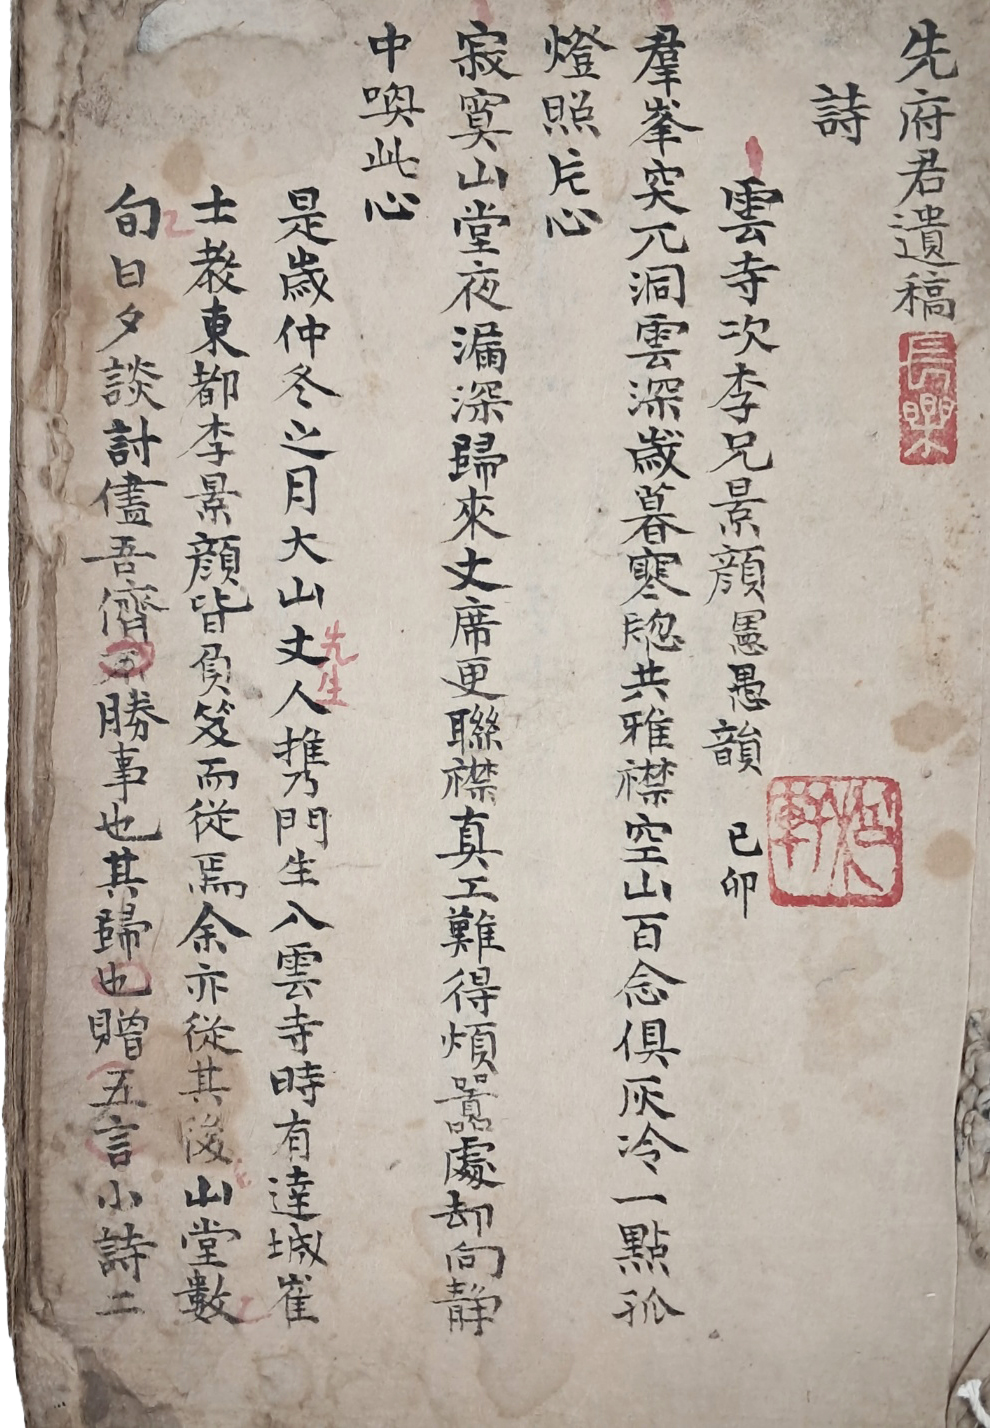 先府君遺稿
長樂
詩
雲寺次李兄景顔愚韻 己卯
軒
羣峯突兀洞雲深歲暮寒牕共雅襟空山百念俱灰冷一點孤
燈照片心
寂寞山堂夜漏深歸來丈席更聯襟真工難得煩囂處却向静
中喚此心
是歲仲冬之月大山丈人携門生入雲寺時有達城崔
先生
士教東都李景顔皆負笈而從焉余亦從其後山堂數
旬日夕談討儘吾儕勝事也其歸也贈五言小詩二